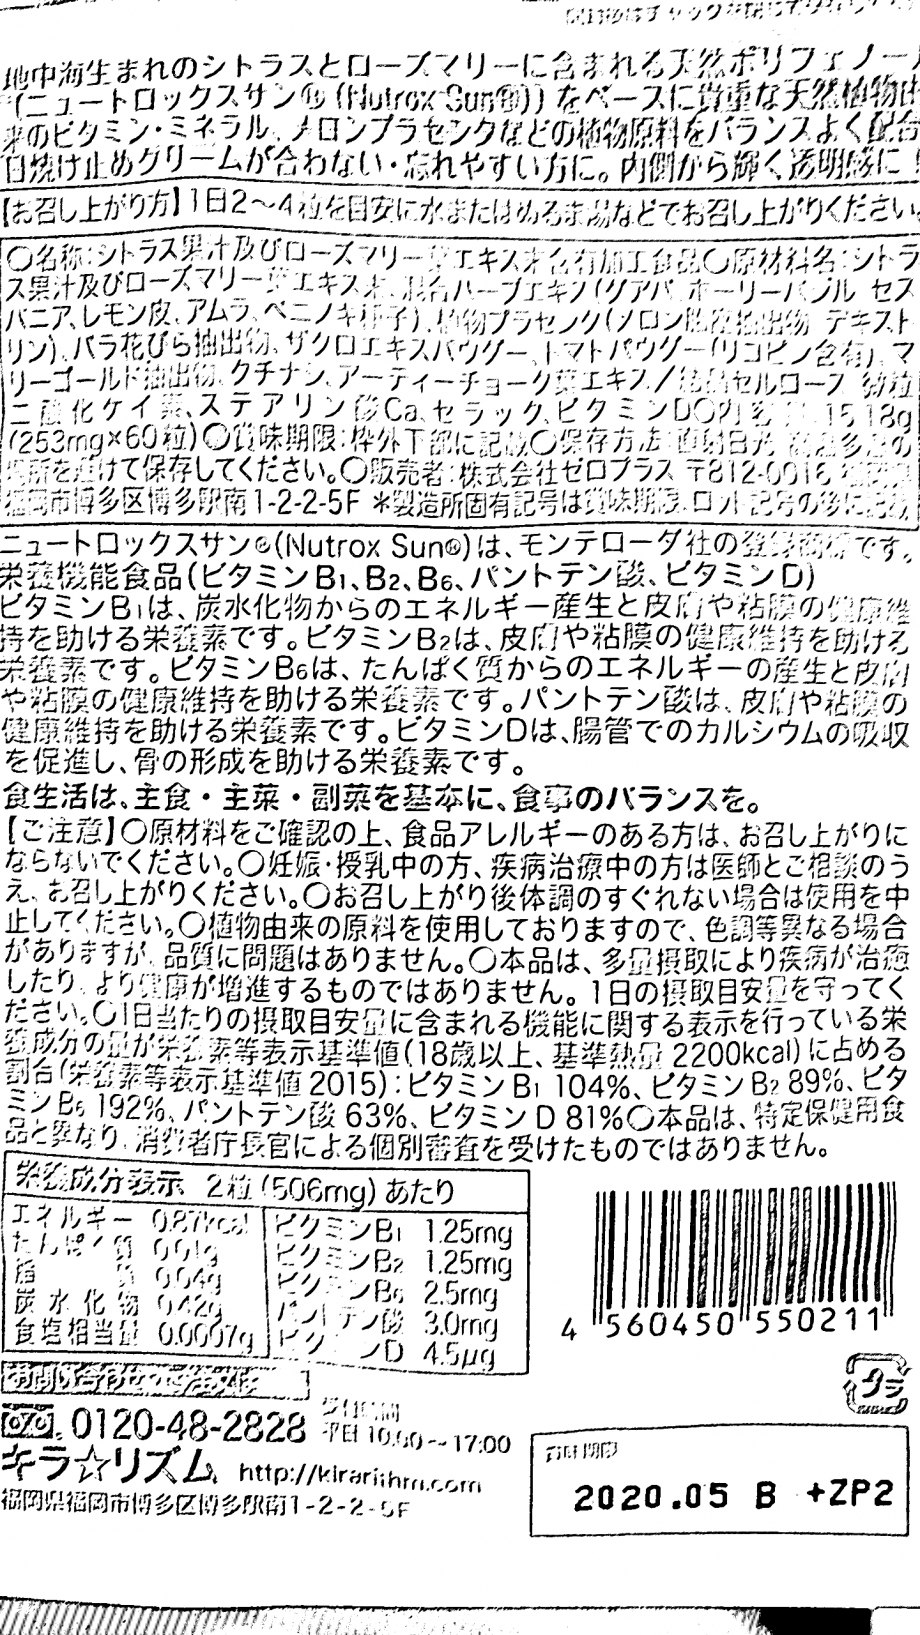 地中海生まれのシトラスとローズマリーに含まれる天然ポリフェノール
(ニュートロックスサン®(Nutrox Sun®))をベースに貴重な天然植物由
来のビタミン・ミネラル、メロンプラセンタなどの植物原料をバランスよく配合
日焼け止めクリームが合わない・忘れやすい方に。内側から輝く透明感に!
【お召し上がり方】1日2〜4粒を目安に水またはぬるま湯などでお召し上がりください。
○名称:シトラス果汁及びローズマリー葉エキス末含有加工食品○原材料名:シトラ
ス果汁及びローズマリー葉エキス末、混合ハーブエキス(グアバ、ホーリーバジル、セス
バニア、レモン皮、アムラ、ベニノキ種子)、植物プラセンタ(メロン胎座抽出物、デキスト
リン)、バラ花びら抽出物、ザクロエキスパウダー、トマトパウダー(リコピン含有)、マ
リーゴールド抽出物、クチナシ、アーティーチョーク葉エキス/結晶セルロース、微粒
二酸化ケイ素、ステアリン酸Ca、セラック、ビタミンD○内容量:15.18g
(253mg×60粒)○賞味期限:枠外下部に記載○保存方法:直射日光、高温多湿の
場所を避けて保存してください。○販売者:株式会社ゼロプラス 〒812-0016
福岡市博多区博多駅南1-2-2-5F *製造所固有記号は賞味期限、ロット記号の後に記載
ニュートロックスサン®(Nutrox Sun®)は、モンテローダ社の登録商標です。
栄養機能食品(ビタミンB₁、B₂、B₆、パントテン酸、ビタミンD)
ビタミンB₁は、炭水化物からのエネルギー産生と皮膚や粘膜の健康維
持を助ける栄養素です。ビタミンB₂は、皮膚や粘膜の健康維持を助ける
栄養素です。ビタミンB₆は、たんぱく質からのエネルギーの産生と皮膚
や粘膜の健康維持を助ける栄養素です。パントテン酸は、皮膚や粘膜の
健康維持を助ける栄養素です。ビタミンDは、腸管でのカルシウムの吸収
を促進し、骨の形成を助ける栄養素です。
食生活は、主食・主菜・副菜を基本に、食事のバランスを。
【ご注意】○原材料をご確認の上、食品アレルギーのある方は、お召し上がりに
ならないでください。○妊娠・授乳中の方、疾病治療中の方は医師とご相談のう
え、お召し上がりください。○お召し上がり後体調のすぐれない場合は使用を中
止してください。○植物由来の原料を使用しておりますので、色調等異なる場合
がありますが、品質に問題はありません。○本品は、多量摂取により疾病が治癒
したり、より健康が増進するものではありません。1日の摂取目安量を守ってく
ださい。○1日当たりの摂取目安量に含まれる機能に関する表示を行っている栄
養成分の量が栄養素等表示基準値(18歳以上、基準熱量 2200kcal)に占める
割合(栄養素等表示基準値 2015):ビタミンB₁ 104%、ビタミンB₂ 89%、ビタ
ミンB₆ 192%、パントテン酸 63%、ビタミンD 81%○本品は、特定保健用食
品と異なり、消費者庁長官による個別審査を受けたものではありません。
栄養成分表示 2粒(506mg)あたり
エネルギー 0.87kcal ビタミンB₁ 1.25mg
たんぱく質 0.01g ビタミンB₂ 1.25mg
脂質 0.04g ビタミンB₆ 2.5mg
炭水化物 0.42g パントテン酸 3.0mg
食塩相当量 0.0007g ビタミンD 4.5μg
4 560450 550211
プラ
お問い合わせ・ご注文は
0120-48-2828 受付時間 平日 10:00〜17:00
キラ☆リズム http://kirarithm.com
福岡県福岡市博多区博多駅南1-2-2-5F
賞味期限
2020.05 B +ZP2